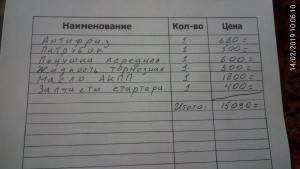 Наименование Кол-во Цена
Антифриз 1 680=
Патрубок 1 500=
Подушка передняя 1 600=
Жидкость тормозная 1 300=
Масло АКПП 1 1800=
Запчасти стартера 1 400=
Итого: 15090=
14/02/2019 10:06:10